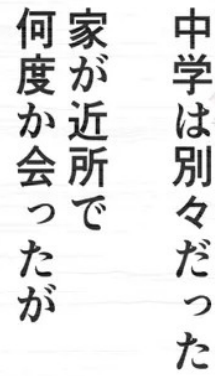 中学は別々だった
家が近所で
何度か会ったが